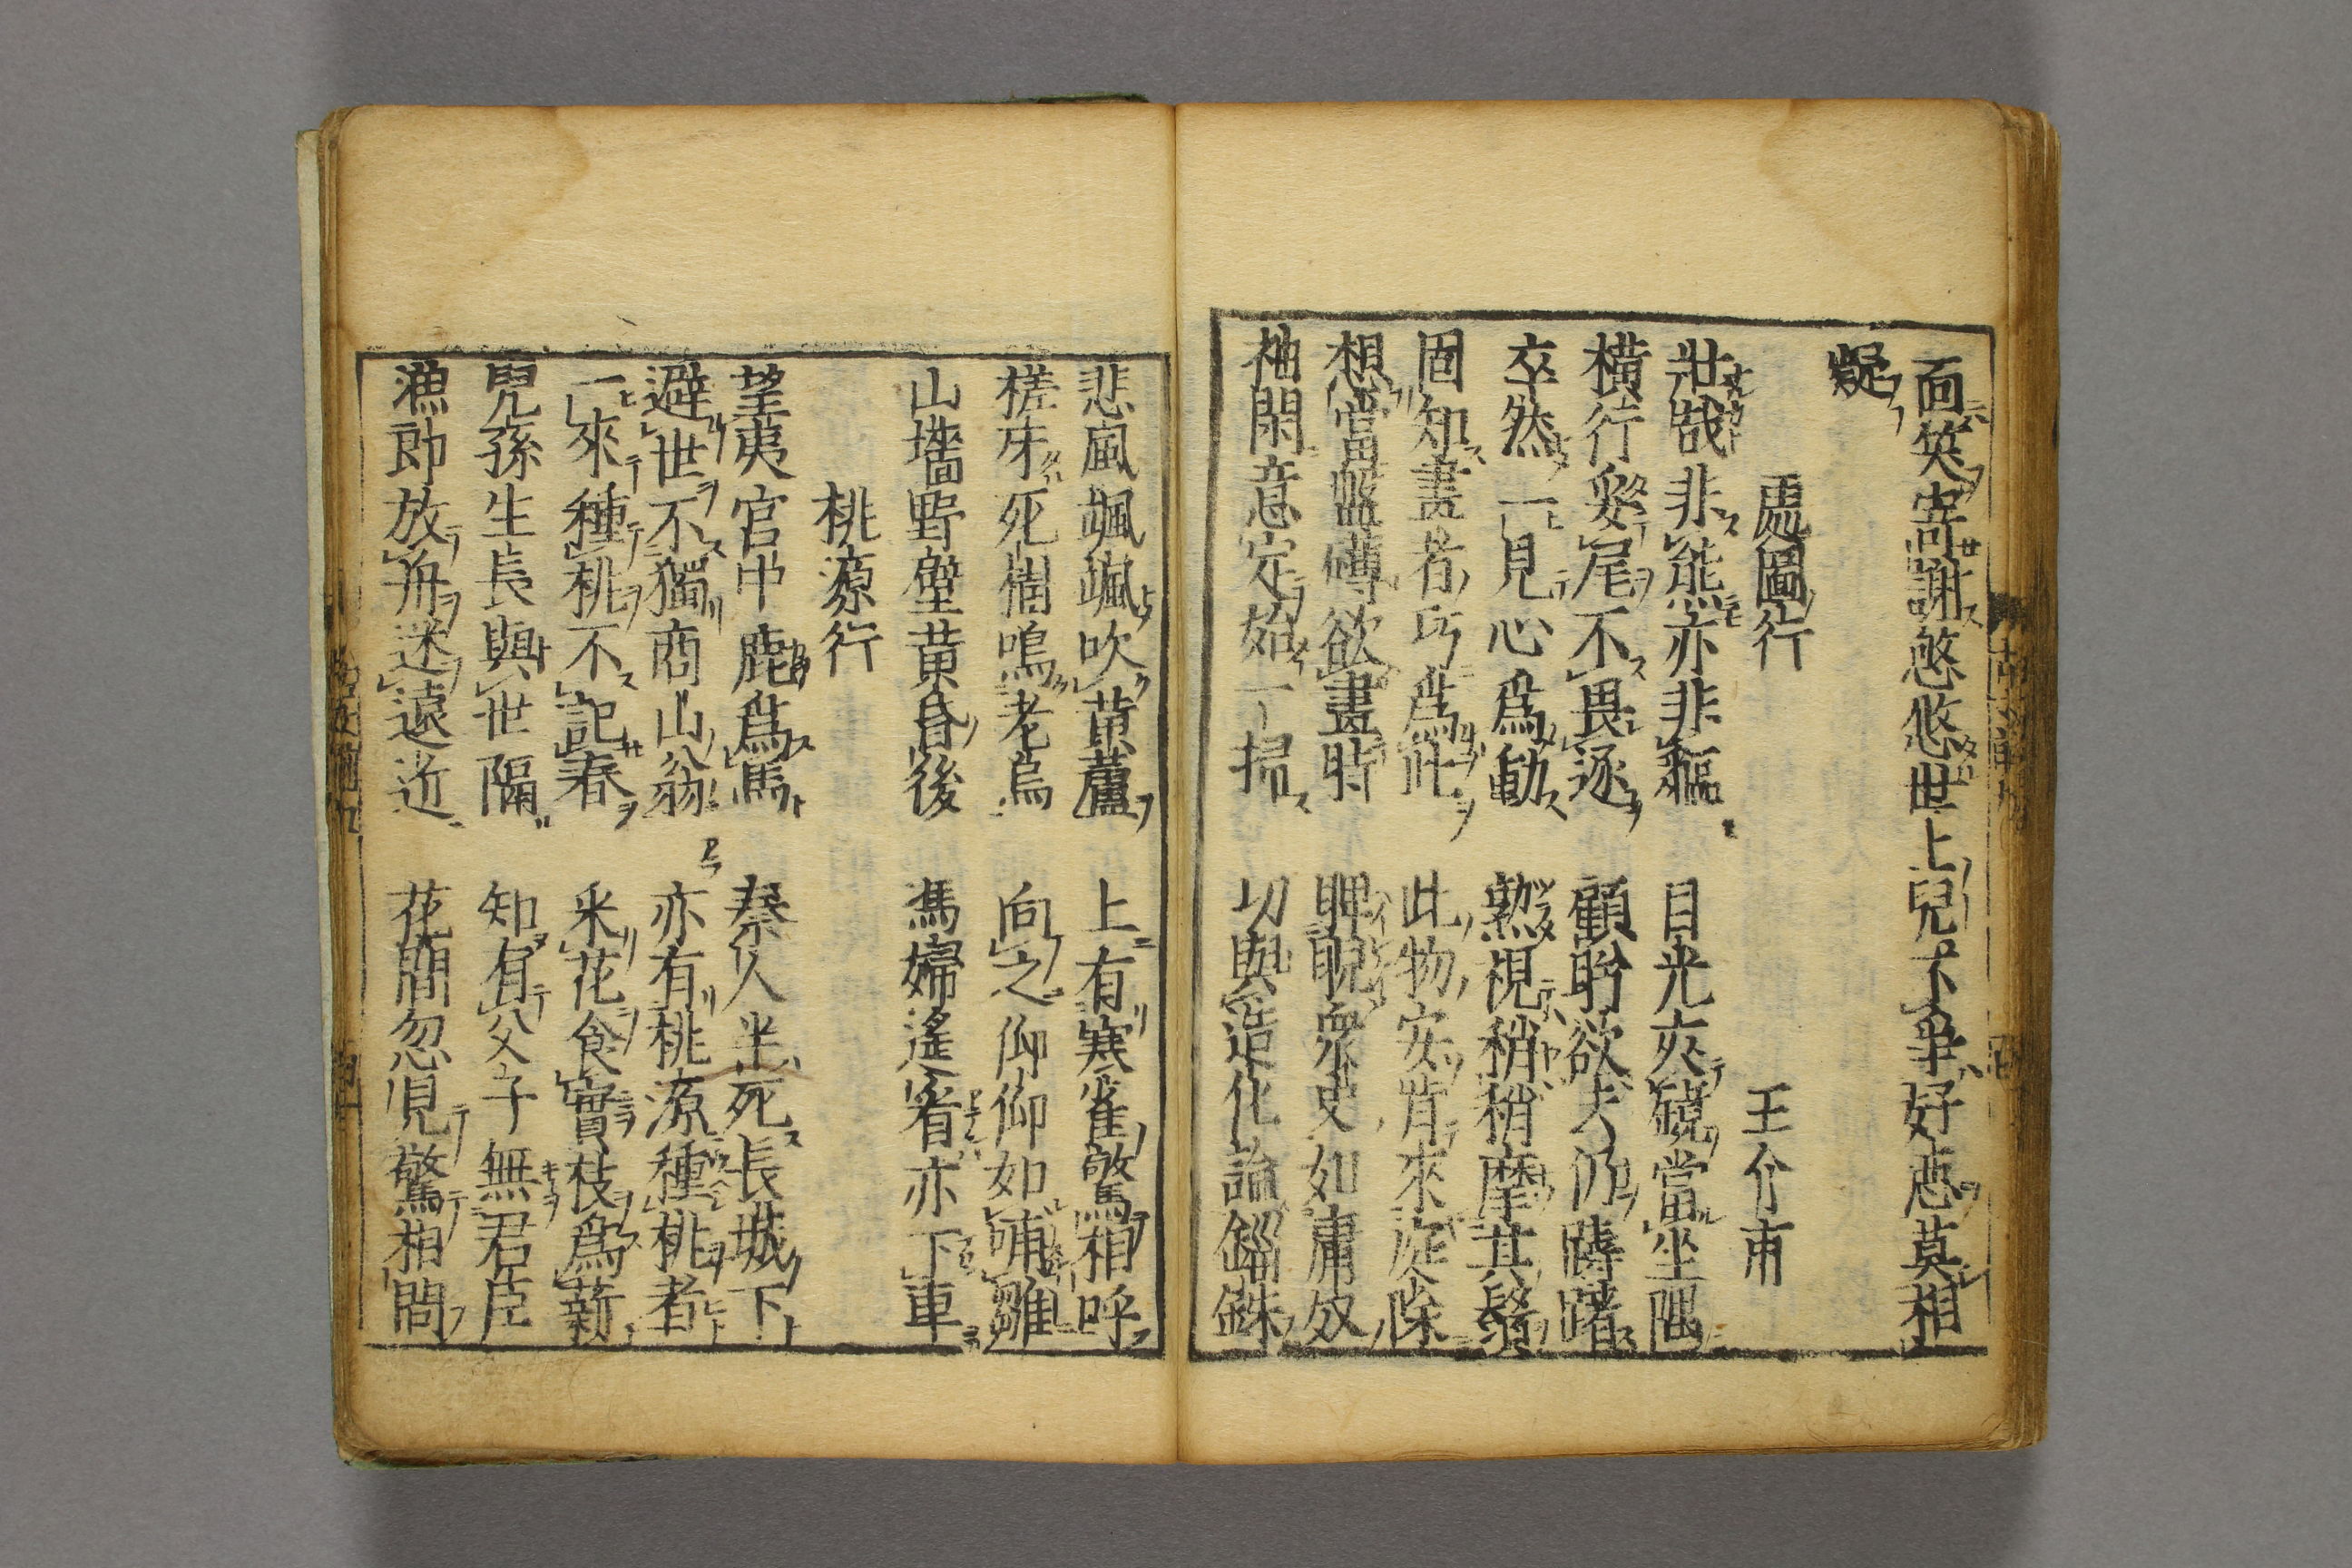 面笑寄謝悠悠世上兒不爭好惡莫相
疑
虎圖行 王介甫
壯哉非熊亦非貙 目光夾鏡當坐隅
橫行妥尾不畏逐 顧盼欲去仍躊躇
卒然一見心為動 熟視稍稍摩其鬚
固知畫者巧為此 此物安肯來庭除
想當盤礴欲畫時 睥睨眾史如庸奴
神閑意定始一掃 功與造化論錙銖
悲風颯颯吹黃蘆 上有寒雀驚相呼
槎牙死樹鳴老烏 向之俛仰如哺雛
山墻野壁黃昏後 馮婦遙看亦下車
桃源行
望夷宮中鹿為馬 秦人半死長城下
避世不獨商山翁 亦有桃源種桃者
一來種桃不記春 采花食實枝為薪
兒孫生長與世隔 知有父子無君臣
漁郎放舟迷遠近 花間忽見驚相問